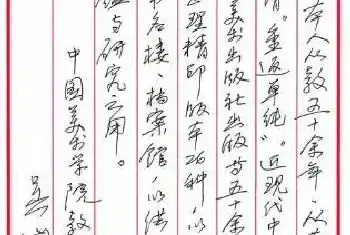 本人从教五十余年、从
“重返单纯”近现代中
美术出版社出版等五十余
理精印版本26种，以
名楼、档案馆，以供
与研究之用。
中国美术学院教